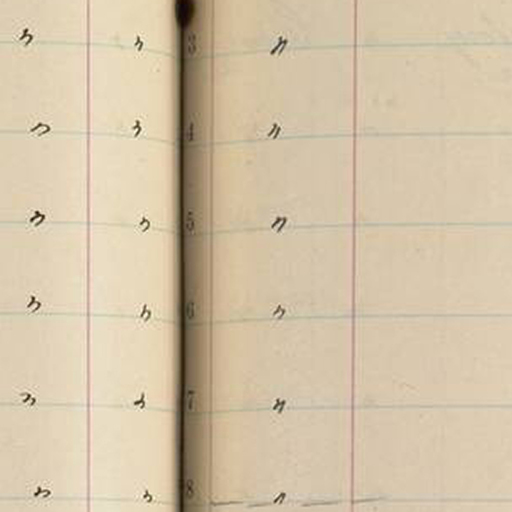 " " 3 "
" " 4 "
" " 5 "
" " 6 "
" " 7 "
" " 8 "